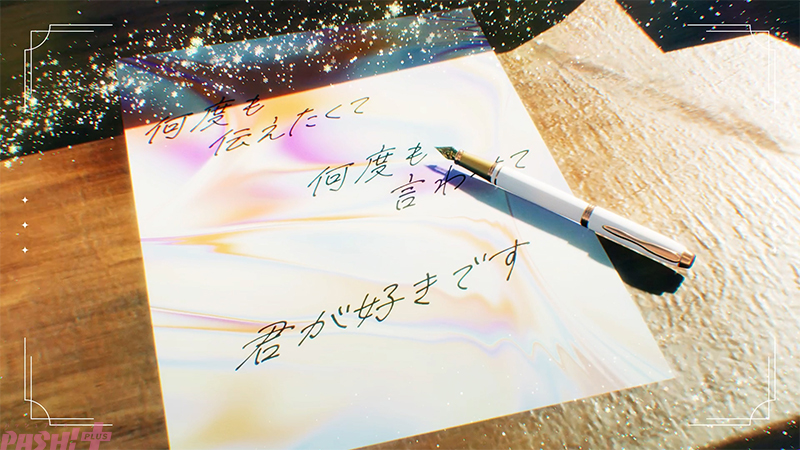 何度も
伝えたくて
何度も
言わ
て
君が好きです
PASH! PLUS